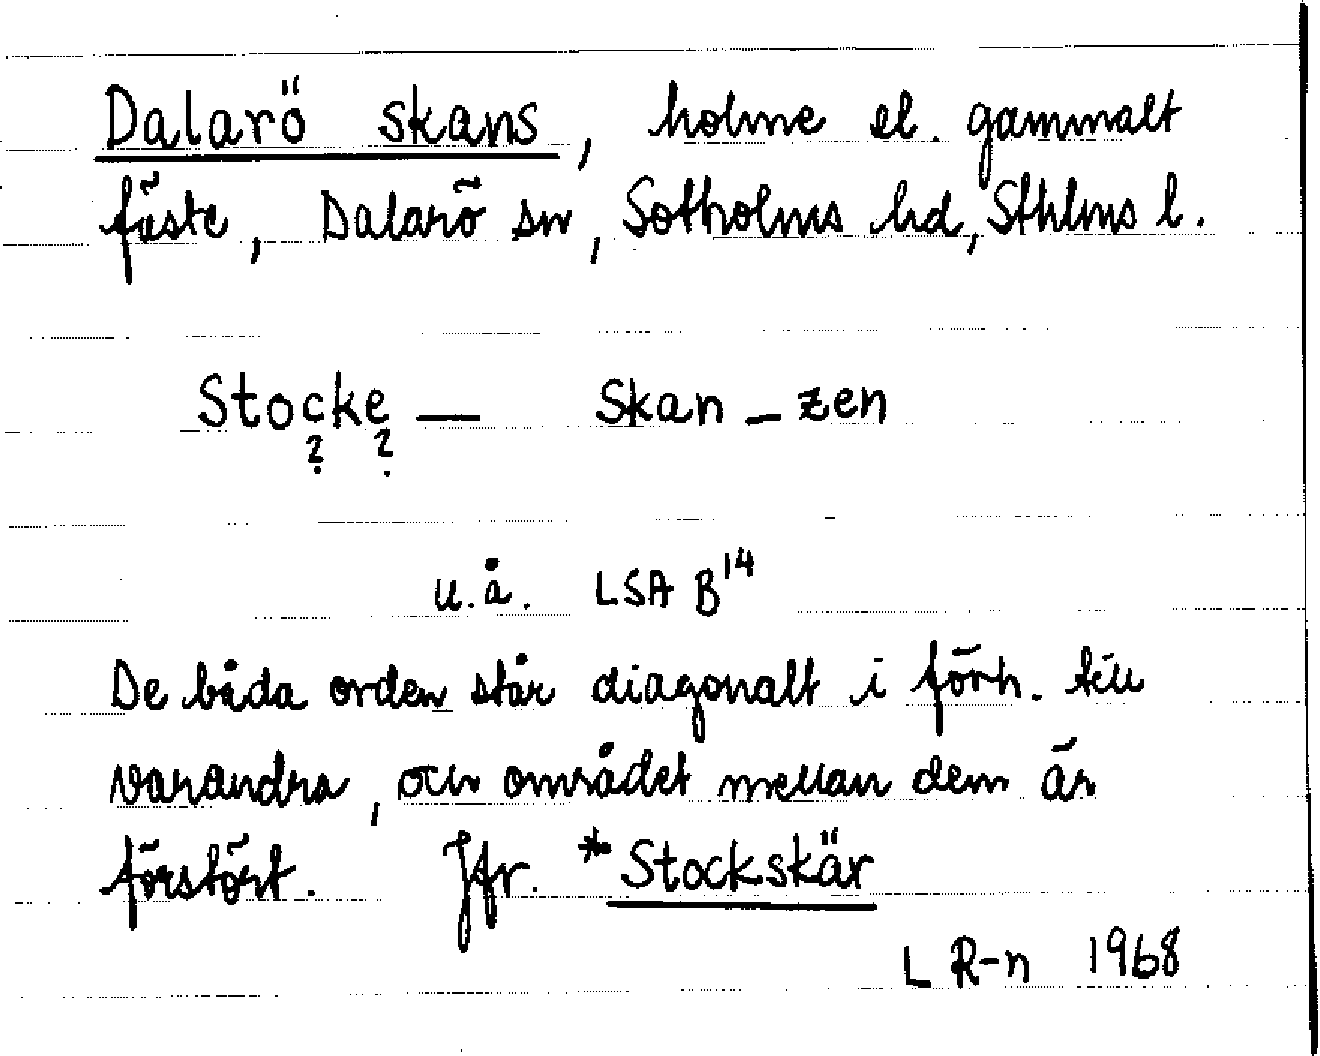 Dalarö skans, holme el. gammalt
fäste, Dalarö sn, Sotholms hd, Sthlms l.
Stocke — Skan – zen
? ?
u.å. LSA B¹⁴
De båda orden står diagonalt i förh. till
varandra, och området mellan dem är
förstört. Jfr. *Stockskär
L R-n 1968